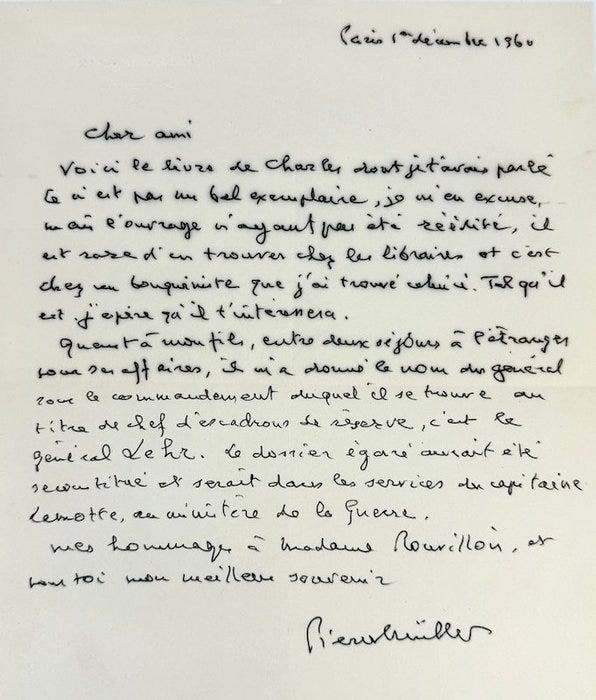 Paris 1er décembre 1960
Cher ami
Voici le livre de Charles dont je t'avais parlé
Ce n'est pas un bel exemplaire, je m'en excuse,
mais l'ouvrage n'ayant pas été réédité, il
est rare d'en trouver chez les libraires et c'est
chez un bouquiniste que j'ai trouvé celui-ci. Tel qu'il
est j'espère qu'il t'intéressera.
Quant à mon fils, entre deux séjours à l'étranger
pour ses affaires, il m'a donné le nom du général
sous le commandement duquel il se trouve au
titre de chef d'escadrons de réserve, c'est le
général Lehr. Le dossier égaré aurait été
reconstitué et serait dans les services du capitaine
Lemotte, au ministère de la Guerre.
Mes hommages à Madame Rouvillois, et
pour toi mon meilleur souvenir